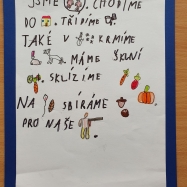 JSME CHODÍME
DO TŘÍDÍME
TAKÉ V KRMÍME
MÁME ŠKLNÍ
SKLÍZÍME
NA SBÍRÁME
PRO NAŠE